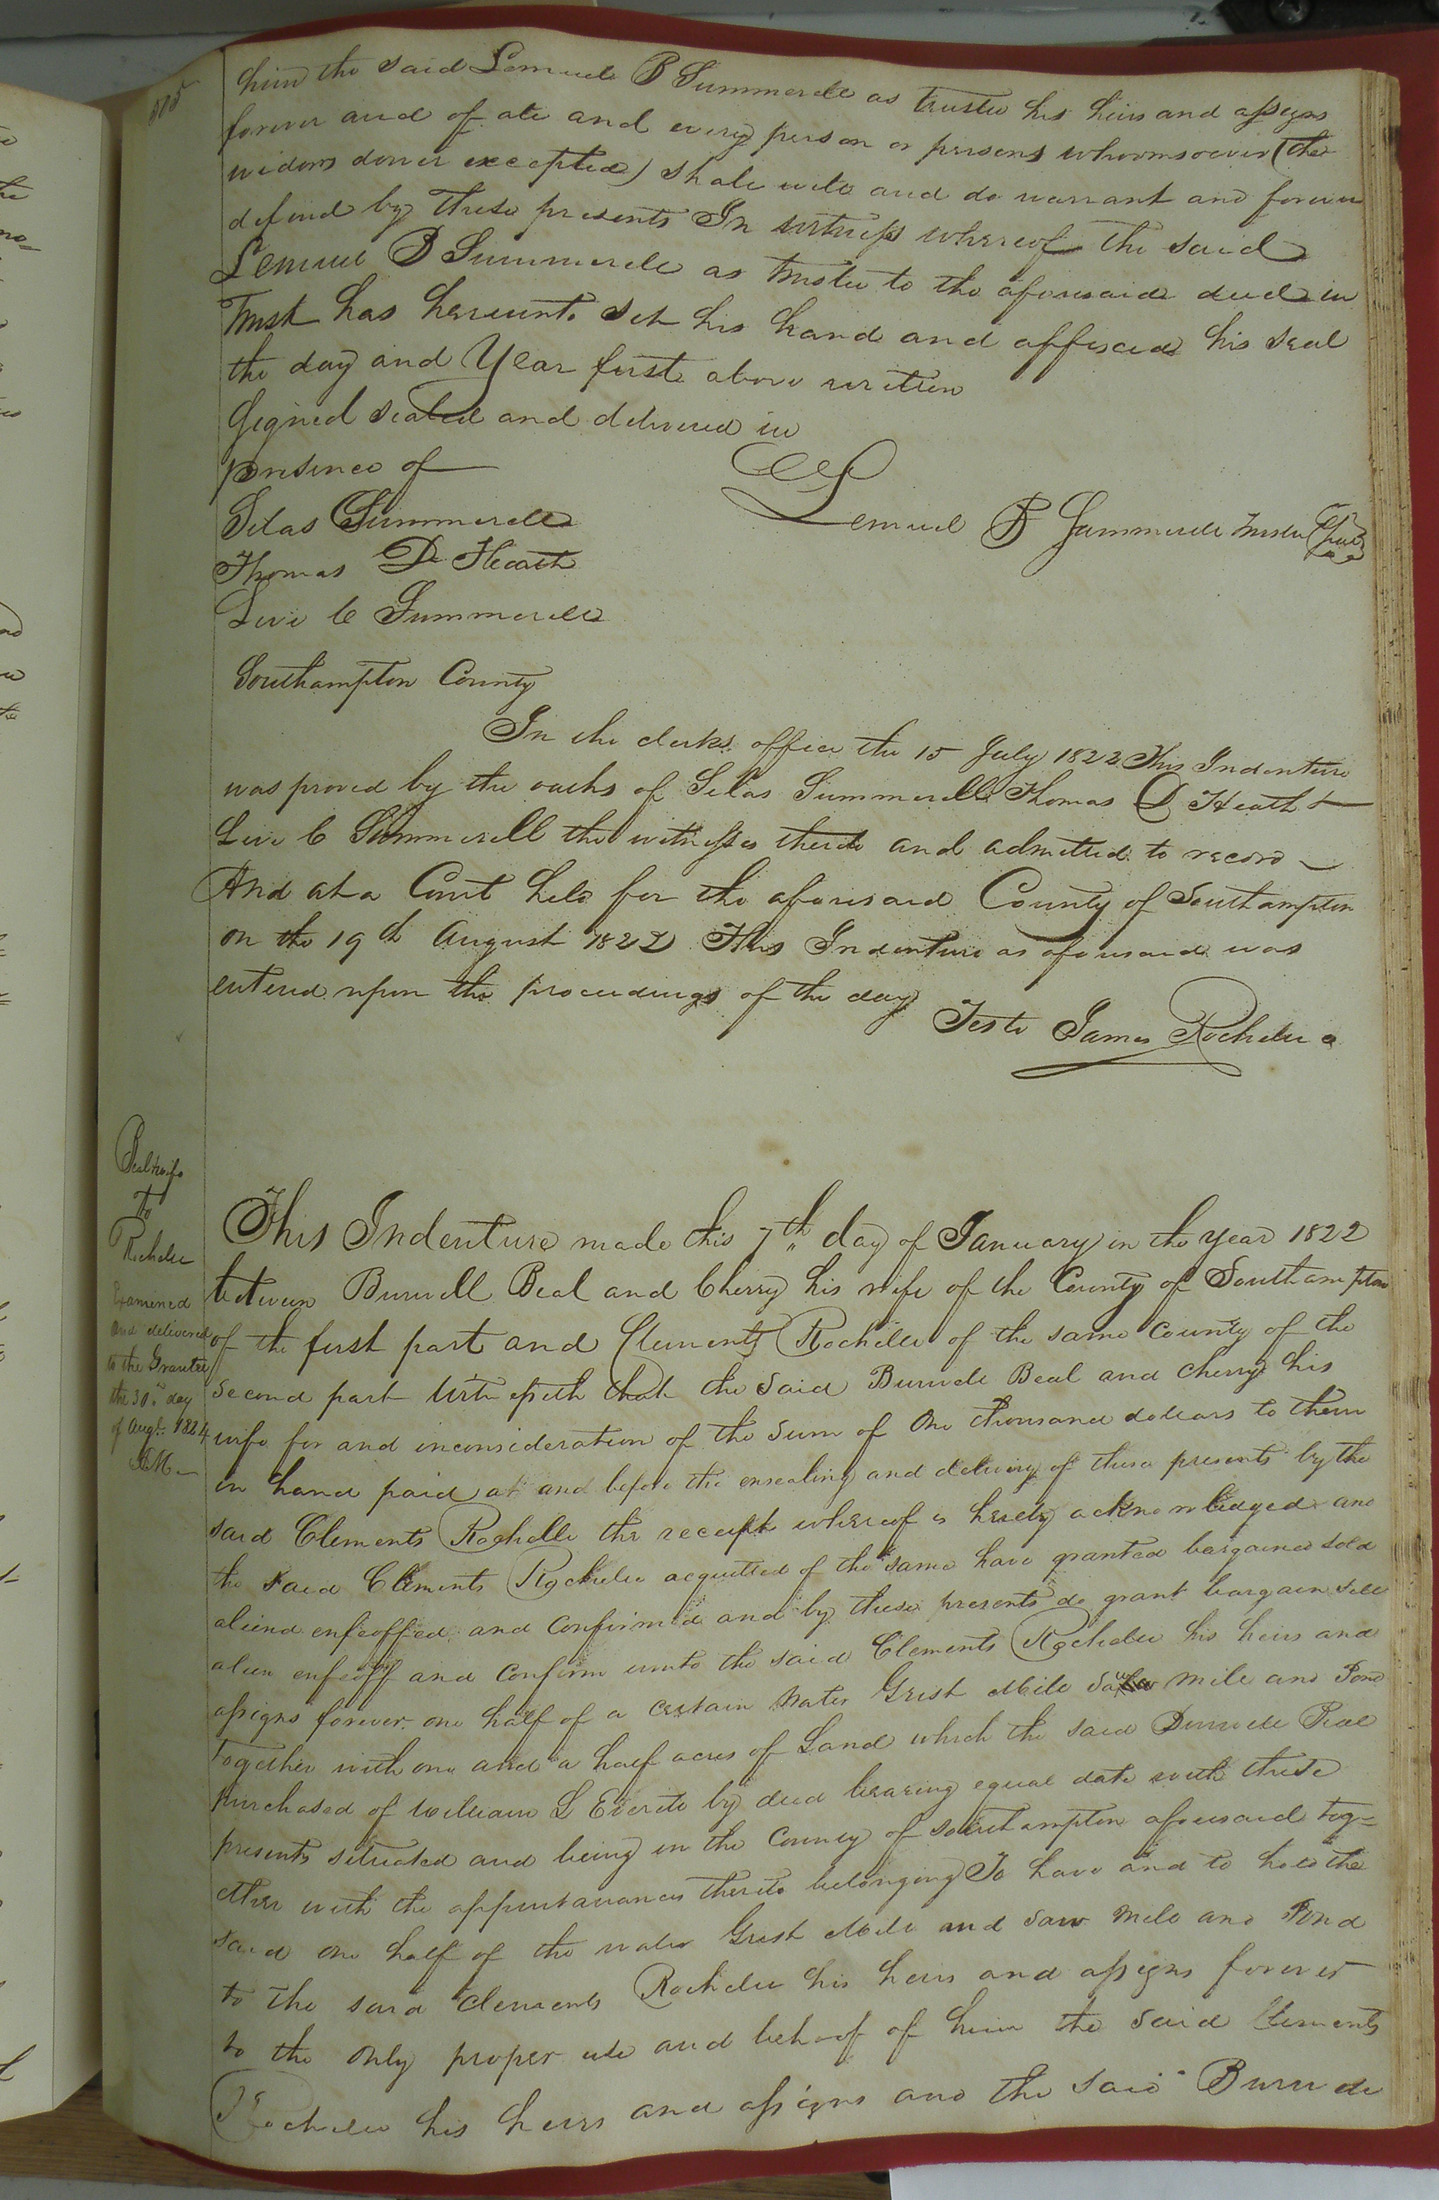 him the said Lemuel B Summerell as trustee his heirs and assigns
forever and of all and every person or persons whomsoever (the
widows dower excepted) shall will and do warrant and forever
defend by these presents In witness whereof the said
Lemuel B Summerell as trustee to the aforesaid deed in
Trust has hereunto set his hand and affixed his seal
the day and Year first above written
Signed sealed and delivered in
presence of
Lemuel B Summerell Trustee Seal
Silas Summerell
Thomas D Heath
Levi C Summerell
Southampton County
In the clerks office the 15 July 1822 This Indenture
was proved by the oaths of Silas Summerell Thomas D Heath &
Levi C Summerell the witnesses thereto and admitted to record
And at a Court held for the aforesaid County of Southampton
on the 19th August 1822 This Indenture as aforesaid was
entered upon the proceedings of the day
Teste James Rochelle c
Beal & wife
To
Rochelle
Examined
and delivered
to the Grantee
the 30th day
of Augt. 1824
This Indenture made this 7th day of January in the year 1822
between Burwell Beal and Cherry his wife of the County of Southampton
of the first part and Clements Rochelle of the same County of the
second part Witnesseth that the said Burwell Beal and Cherry his
wife for and inconsideration of the sum of One thousand dollars to them
in hand paid at and before the ensealing and delivery of these presents by the
said Clements Rochelle the receipt whereof is hereby acknowledged and
the said Clements Rochelle acquitted of the same have granted bargained sold
aliend enfeoffed and confirmed and by these presents do grant bargain sell
alien enfeoff and confirm unto the said Clements Rochelle his heirs and
assigns forever one half of a certain Water Grist Mill Saw mill and Pond
together with one and a half acres of Land which the said Burwell Beal
purchased of William L Everitt by deed bearing equal date with these
presents situated and being in the County of Southampton aforesaid tog=
ether with the appurtanances thereto belonging To have and to hold the
said one half of the water Grist Mill and Saw mill and Pond
to the said Clements Rochelle his heirs and assigns forever
to the only proper use and behoof of him the said Clements
Rochelle his heirs and assigns and the said Burwell